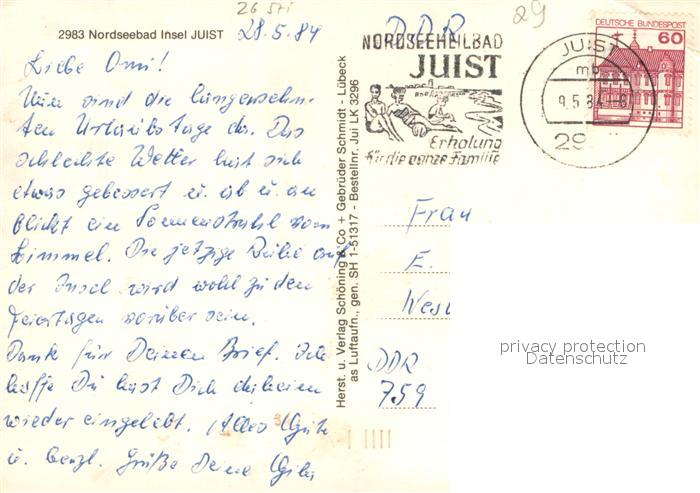 2983 Nordseebad Insel JUIST
28.5.84
Liebe Omi!
Nun sind die langersehn-
ten Urlaubstage da. Das
schlechte Wetter hat sich
etwas gebessert u. ab u. an
blickt ein Sonnenstrahl vom
Himmel. Die jetzige Ruhe auf
der Insel wird wohl zu den
Feiertagen vorüber sein.
Dank für Deinen Brief. Ich
hoffe Du hast Dich daheim
wieder eingelebt. Alles Gute
u. herzl. Grüße Deine
Herst. u. Verlag Schöning & Co + Gebrüder Schmidt - Lübeck
as Luftaufn., gen. SH 1-51317 - Bestellnr. Jui LK 3296
DDR
29
NORDSEEHEILBAD
JUIST
Erholung
für die ganze Familie
JUIST
mb
9.5.84
29
DEUTSCHE BUNDESPOST
60
Frau
E.
West
DDR
759
privacy protection
Datenschutz